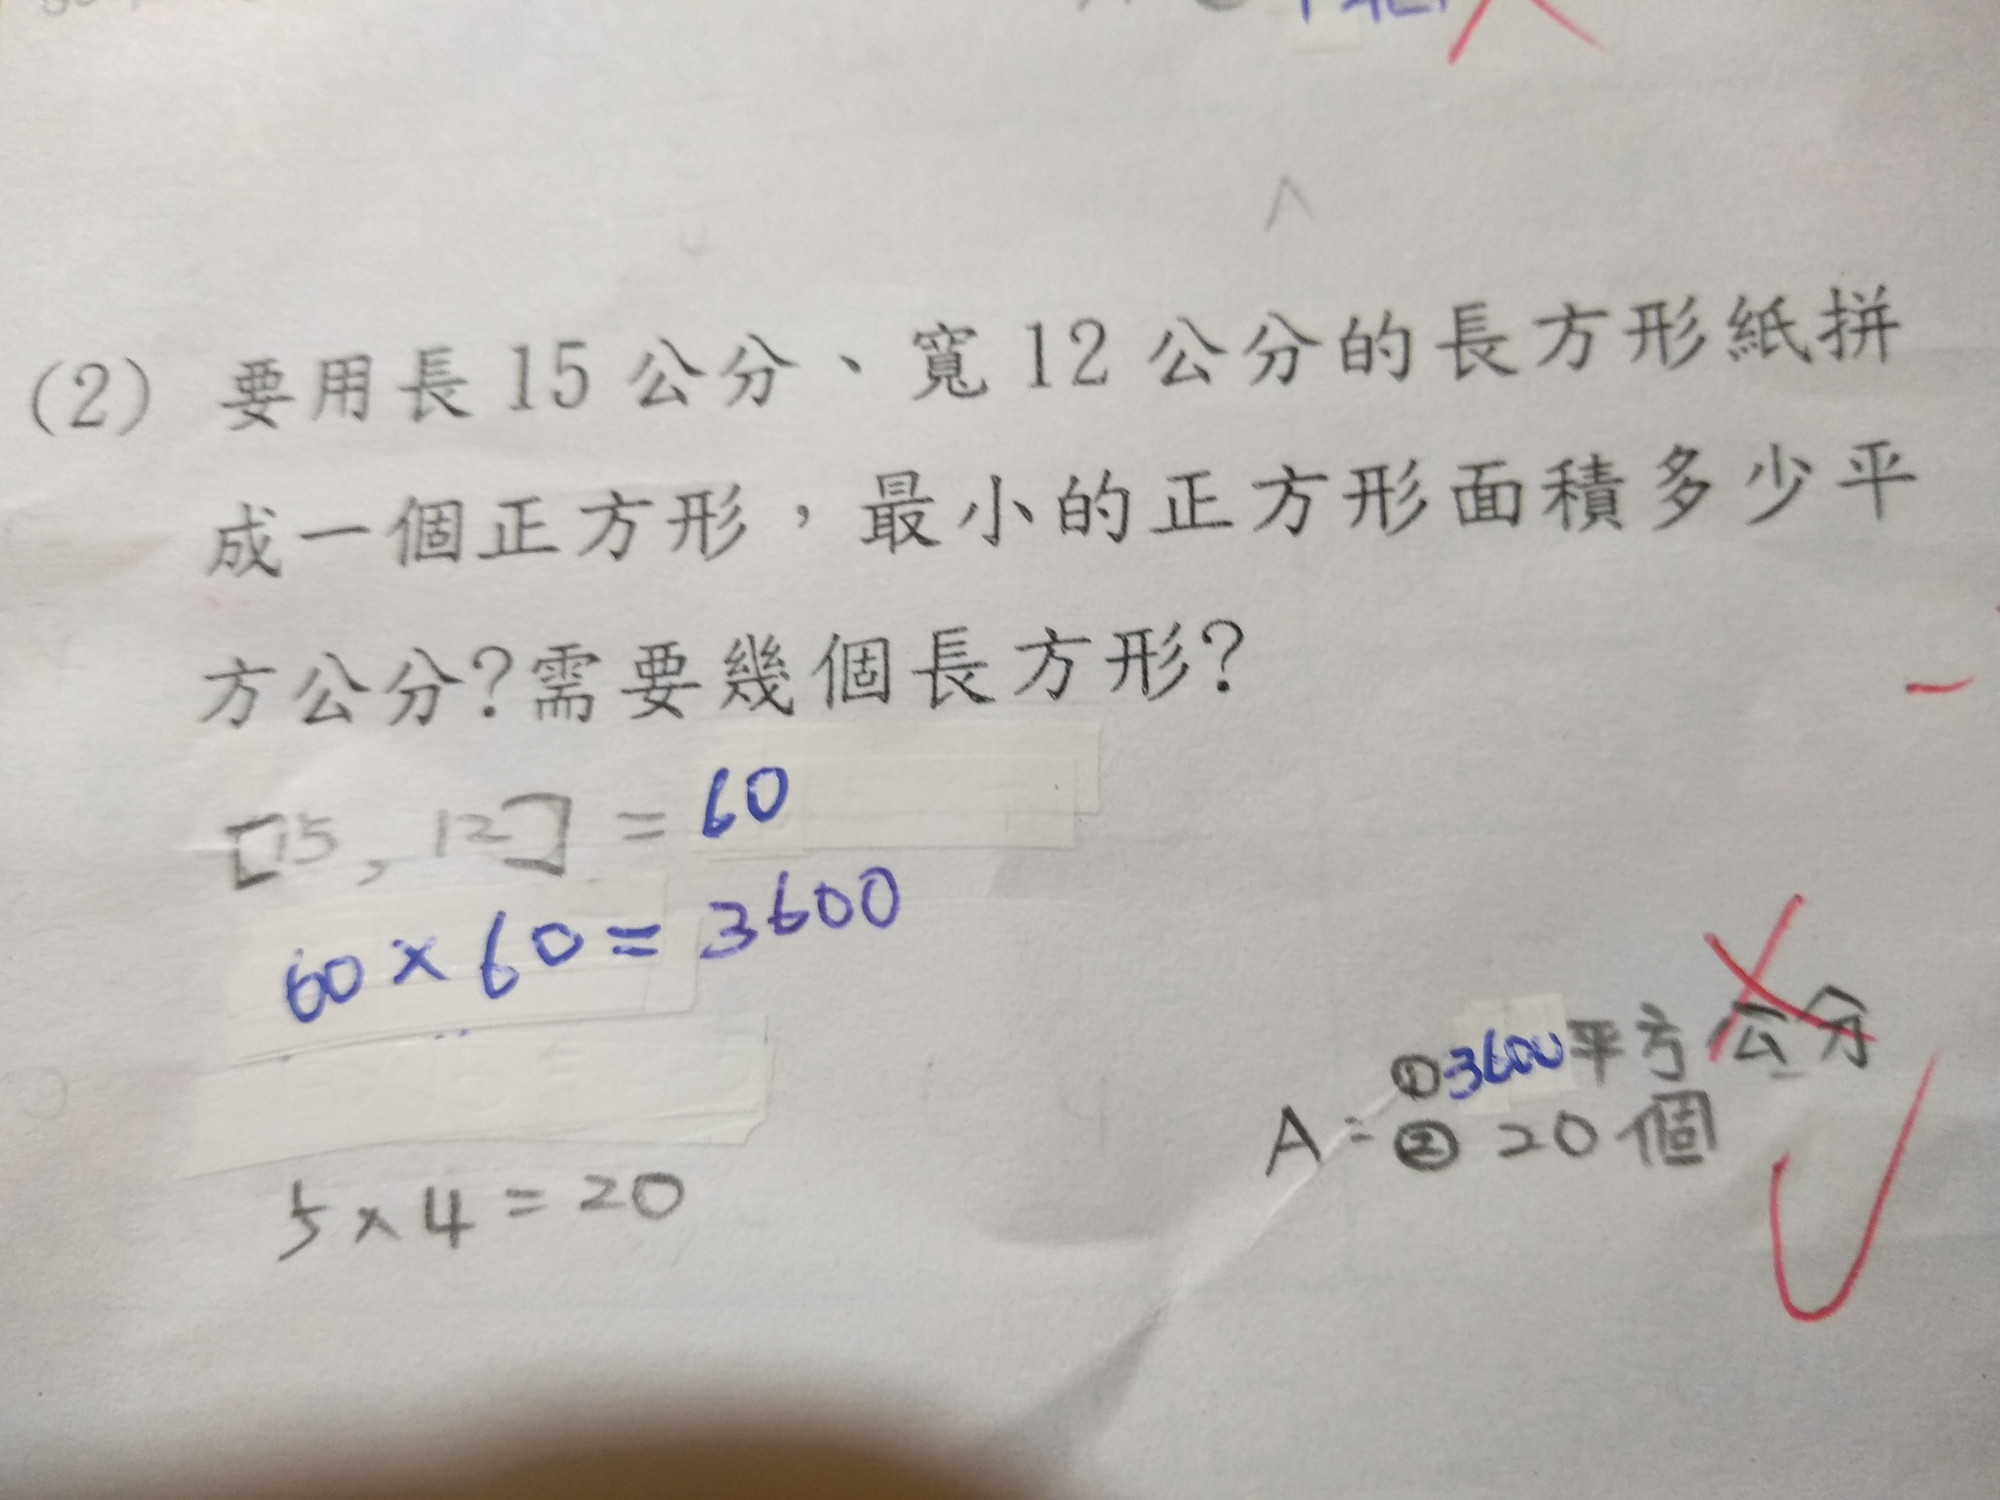 (2) 要用長15公分、寬12公分的長方形紙拼
成一個正方形，最小的正方形面積多少平
方公分?需要幾個長方形?
[15, 12] = 60
60 × 60 = 3600
5 × 4 = 20
A = ①3600平方公分
② 20個